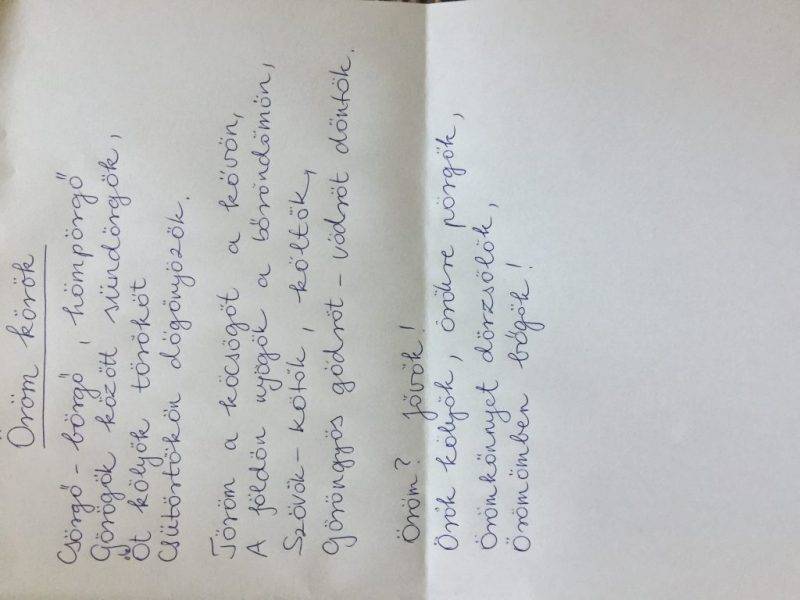 Öröm körök
Csörgő-börgő, hömpörgő
Görögök között sündörgők,
Öt kölyök törököt
Csütörtökön dögönyözök.
Töröm a köcsögöt a kövön,
A földön nyögök a böröndömön,
Szövök-kötök, költök,
Göröngyös gödröt-vödröt döntök.
Öröm? Jövök!
Örök kölyök, örökre pörgök,
Örömkönnyet dörzsölök,
Örömömben bőgök!